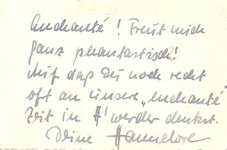 Enchanté! Freut mich
ganz phantastisch!
Auf daß Du noch recht
oft an unsere „Enchanté"
Zeit in H' werder denkst.
Deine Hannelore